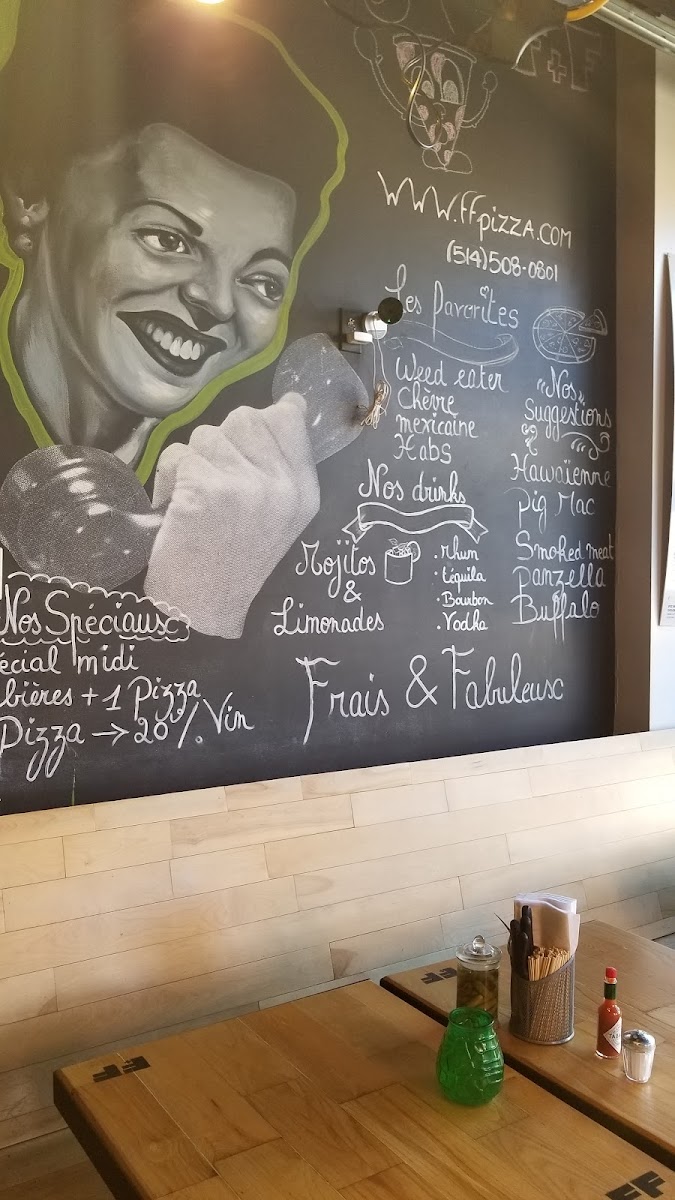 F+F
www.ffpizza.com
(514)508-0801
Les favorites
Weed eater
Chèvre
mexicaine
Habs
"Nos"
Suggestions
Hawaïenne
Pig Mac
Smoked meat
Panzella
Buffalo
Nos drinks
Mojitos
&
Limonades
• Rhum
• téquila
• Bourbon
• Vodka
Nos Spéciaux
écial midi
bières + 1 Pizza
Pizza → 20% Vin
Frais & Fabuleux
FF
FF
FF